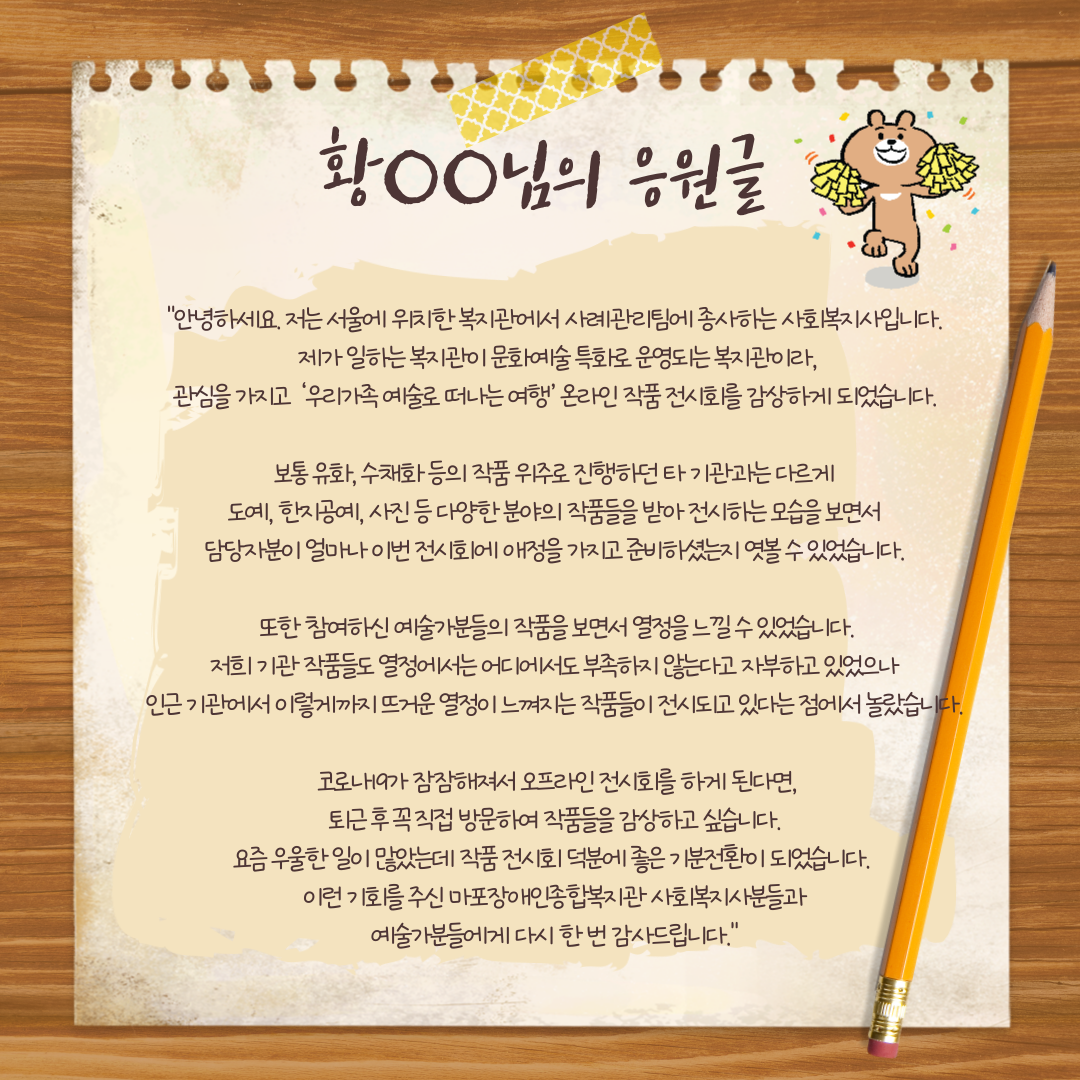 황OO님의 응원글
"안녕하세요. 저는 서울에 위치한 복지관에서 사례관리팀에 종사하는 사회복지사입니다.
제가 일하는 복지관이 문화예술 특화로 운영되는 복지관이라,
관심을 가지고 ‘우리가족 예술로 떠나는 여행’ 온라인 작품 전시회를 감상하게 되었습니다.
보통 유화, 수채화 등의 작품 위주로 진행하던 타 기관과는 다르게
도예, 한지공예, 사진 등 다양한 분야의 작품들을 받아 전시하는 모습을 보면서
담당자분이 얼마나 이번 전시회에 애정을 가지고 준비하셨는지 엿볼 수 있었습니다.
또한 참여하신 예술가분들의 작품을 보면서 열정을 느낄 수 있었습니다.
저희 기관 작품들도 열정에서는 어디에서도 부족하지 않는다고 자부하고 있었으나
인근 기관에서 이렇게까지 뜨거운 열정이 느껴지는 작품들이 전시되고 있다는 점에서 놀랐습니다.
코로나19가 잠잠해져서 오프라인 전시회를 하게 된다면,
퇴근 후 꼭 직접 방문하여 작품들을 감상하고 싶습니다.
요즘 우울한 일이 많았는데 작품 전시회 덕분에 좋은 기분전환이 되었습니다.
이런 기회를 주신 마포장애인종합복지관 사회복지사분들과
예술가분들에게 다시 한 번 감사드립니다."